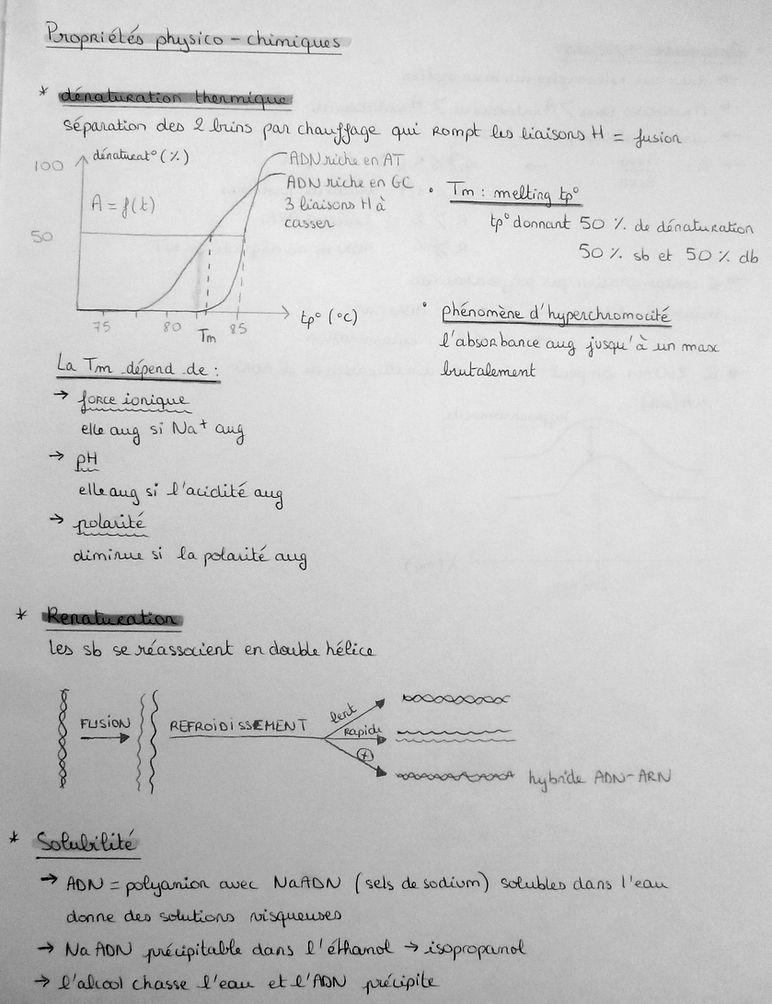 Propriétés physico-chimiques
* dénaturation thermique
séparation des 2 brins par chauffage qui rompt les liaisons H = fusion
100
dénaturat° (%)
A = f(t)
50
75
80
Tm
85
tp° (°C)
ADN riche en AT
ADN riche en GC
3 liaisons H à
casser
• Tm : melting tp°
tp° donnant 50 % de dénaturation
50 % sb et 50 % db
• phénomène d'hyperchromocité
l'absorbance aug jusqu'à un max
brutalement
La Tm dépend de :
→ force ionique
elle aug si Na+ aug
→ pH
elle aug si l'acidité aug
→ polarité
diminue si la polarité aug
* Renaturation
les sb se réassocient en double hélice
FUSION
REFROIDISSEMENT
lent
rapide
+
hybride ADN-ARN
* Solubilité
→ ADN = polyanion avec NaADN (sels de sodium) solubles dans l'eau
donne des solutions visqueuses
→ NaADN précipitable dans l'éthanol → isopropanol
→ l'alcool chasse l'eau et l'ADN précipite